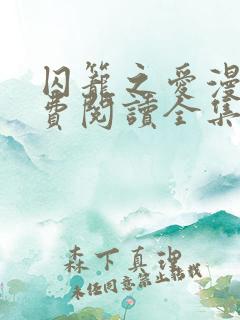 囚籠之愛漫
費閱讀全集
森下真理
未任同意禁止轉載